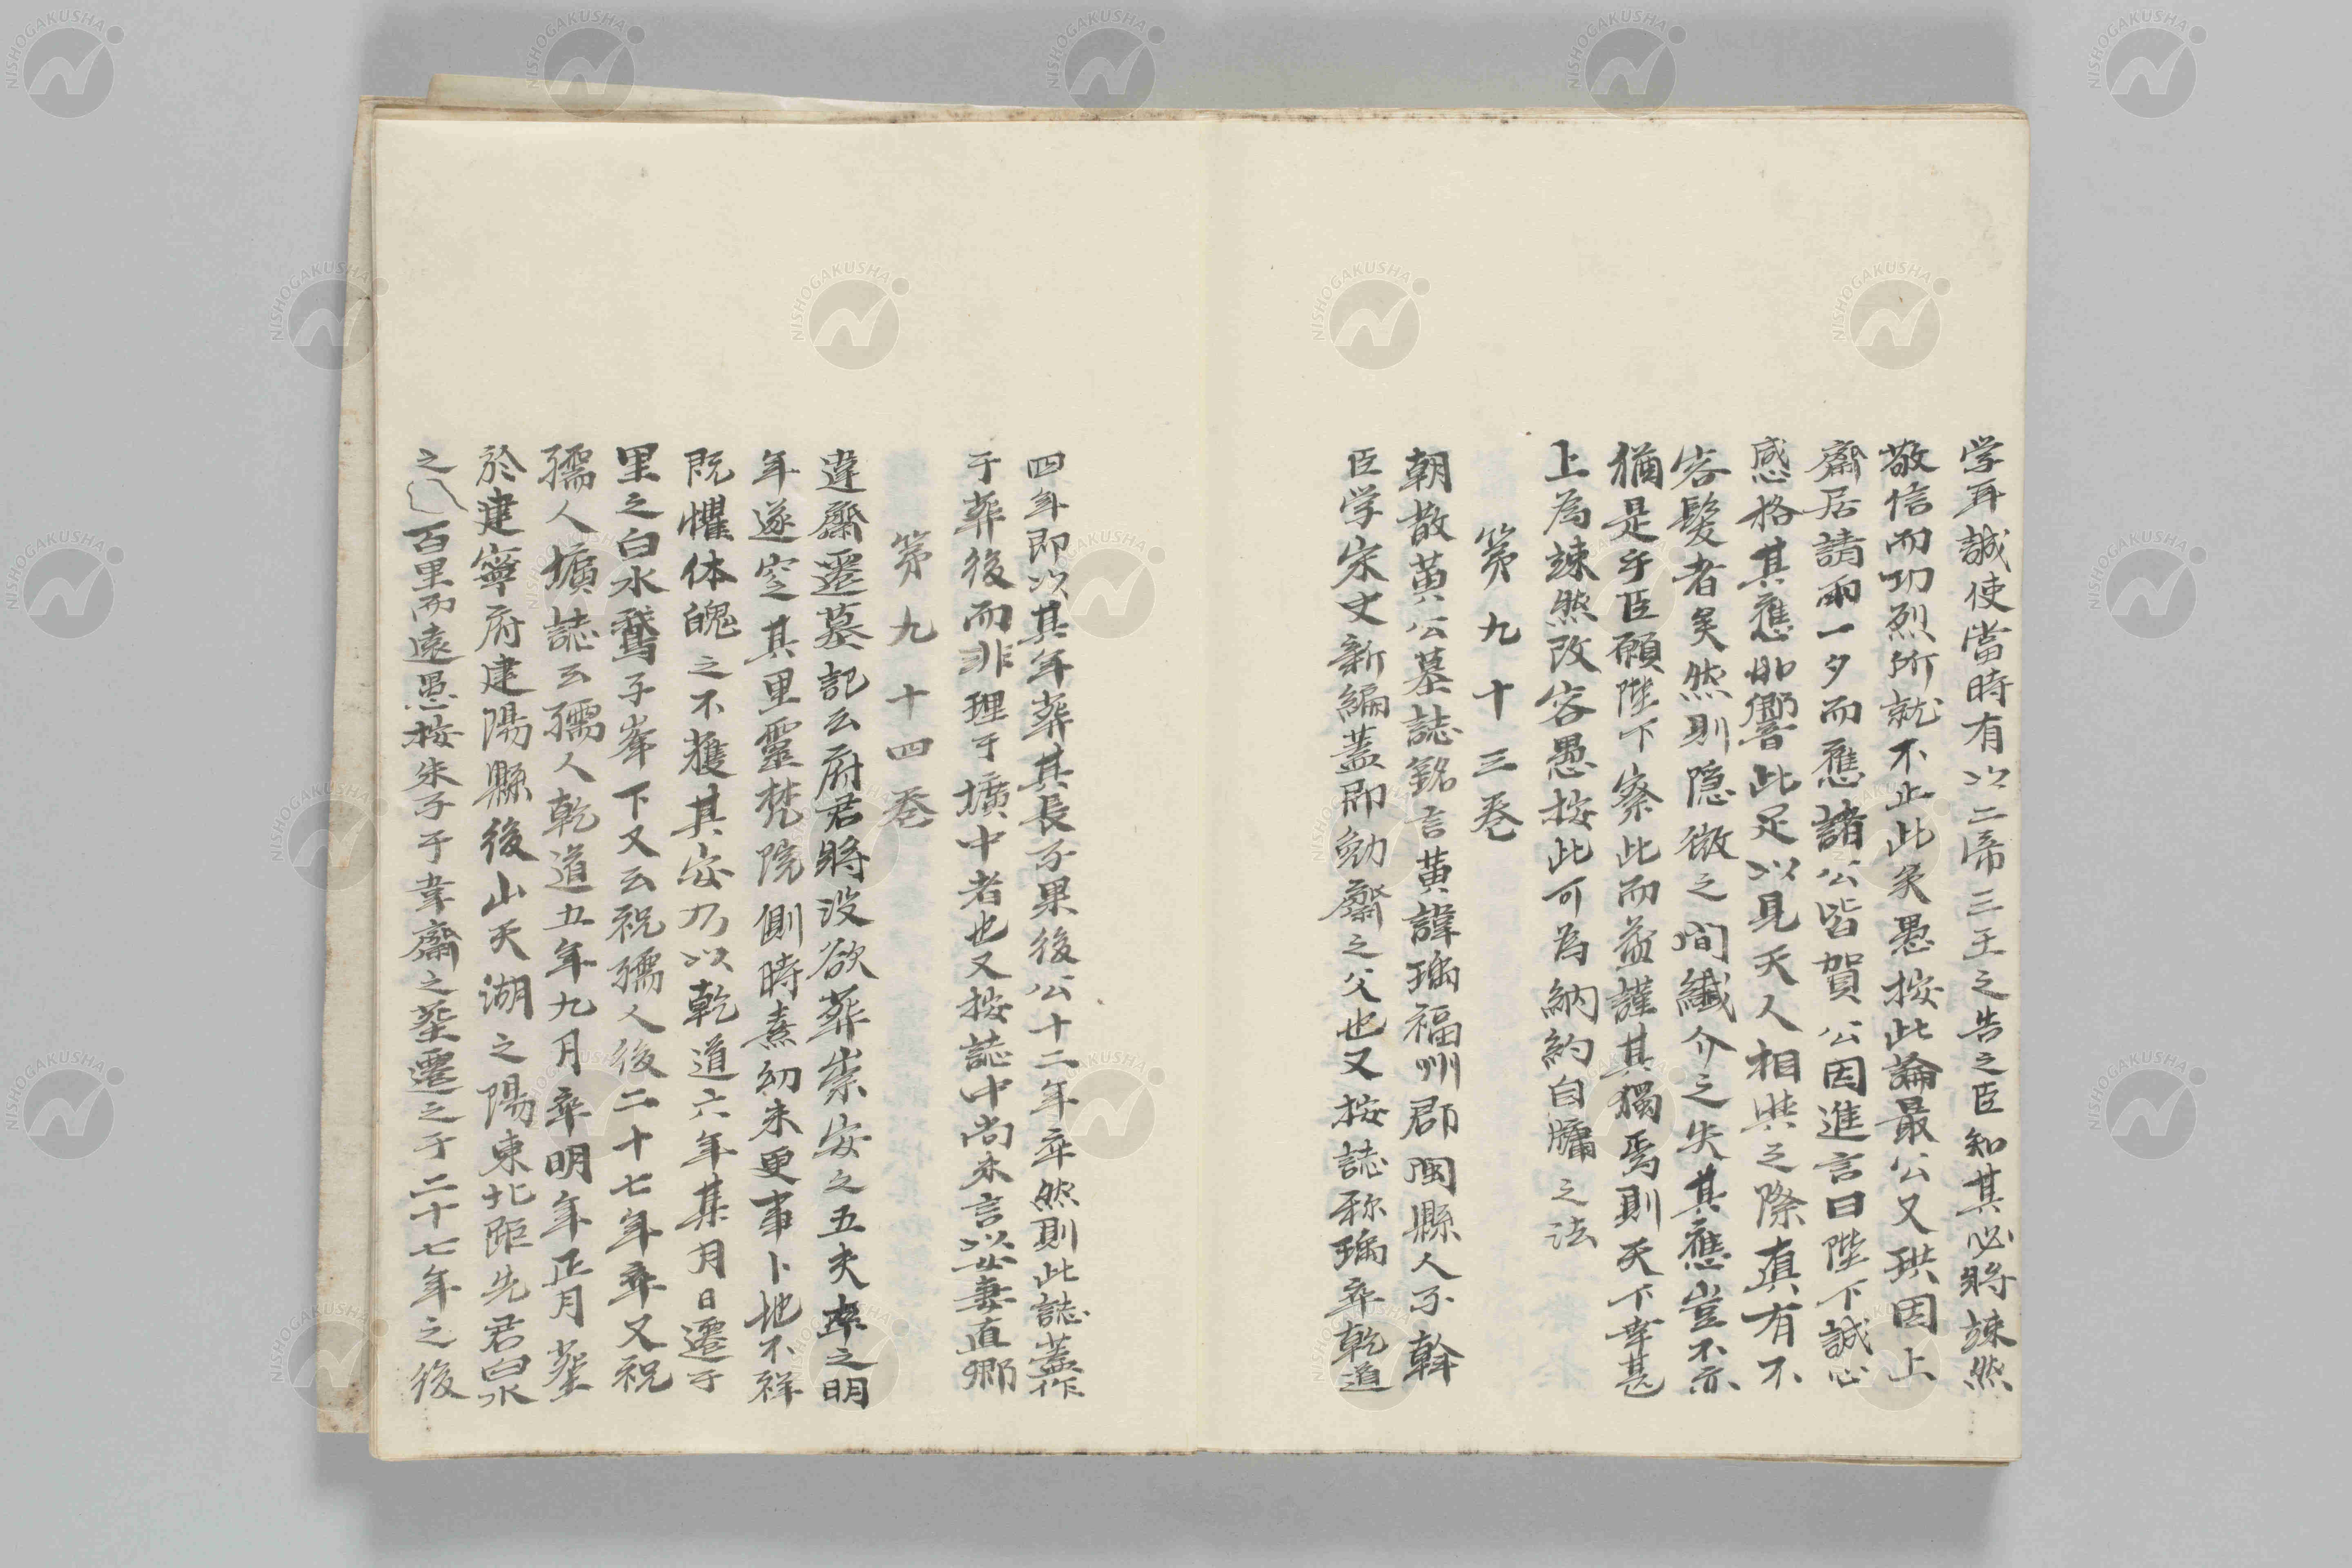 学耳誠使當時有以二帝三王之告之臣知其必將竦然
敬信而功烈所就不止此矣愚按此論最公又珙因上
齋居請雨一夕而應諸公皆賀公因進言曰陛下誠心
感格其應如響此足以見天人相與之際真有不
容髮者矣然則隠微之間纎介之失其應豈不亦
猶是乎臣願陛下察此而益謹其獨焉則天下幸甚
上為竦然改容愚按此可為納約自牖之法
第九十三巻
朝散黄公墓誌銘言黄諱瑀福州郡閩縣人子幹
臣学宋史新編蓋即勉齋之父也又按誌称瑀卒乾道
四年即以其年葬其長子果後公十二年卒然則此誌蓋作
于葬後而非理于壙中者也又按誌中尚未言以女妻直卿
第九十四巻
韋齋遷墓記云府君將没欲葬崇安之五夫卒之明
年遂窆其里靈梵院側時熹幼未更事卜地不祥
既懼体魄之不獲其安乃以乾道六年某月日遷于
里之白水鵞子峯下又云祝孺人後二十七年卒又祝
孺人壙誌云孺人乾道五年九月卒明年正月葬
於建寧府建陽縣後山天湖之陽東北距先君白水
之百里而遠愚按朱子于韋齋之葬遷之于二十七年之後
NISHOGAKUSHA